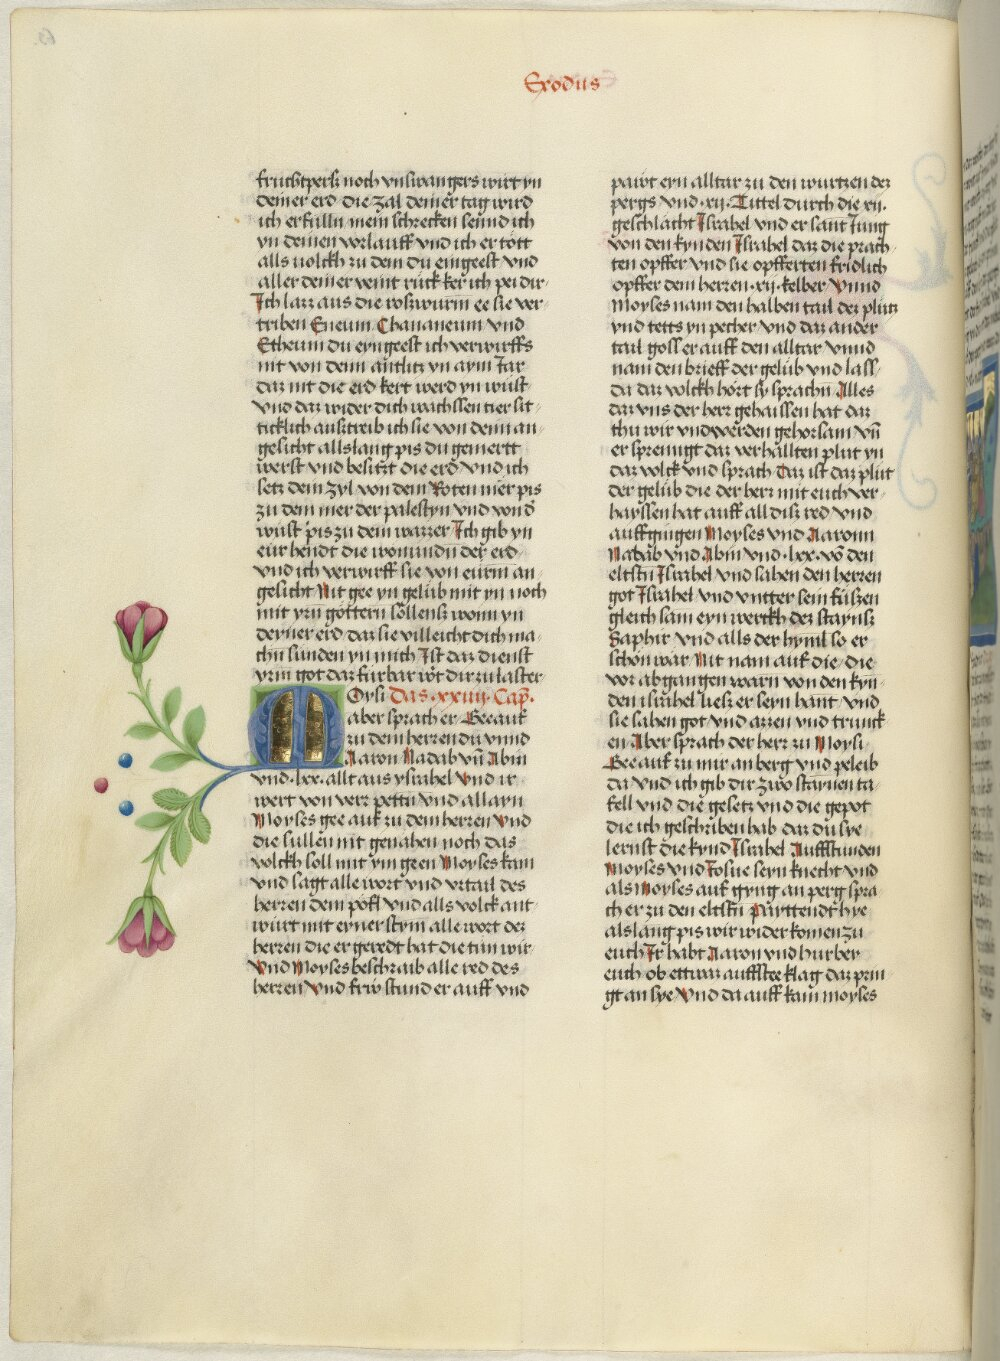 Exodus
fruchtperß noch vnswangers wirt yn
deiner erd die zal deiner tag wird
ich erfülln mein schrecken sennd ich
yn deinen vorlauff vnd ich ertött
alls volckh zu dem du eingeest vnd
aller deiner veint rück ker ich pei dir
Ich lazz aus die roszwürm ee sie ver-
triben Eueum Chananeum vnd
Etheum du eyngeest ich verwirffs
nit von deim antlitz yn aym Jar
daz nit die erd kert werd yn wüst
vnd daz wider dich wachssen tier sit-
ticklich ausztreib ich sie von deim an-
gesicht allslang pis du gemertt
werst vnd besitzt die erd vnd ich
setz dem zyl von dem Roten mer pis
zu dem mer der palestyn vnd von d̄
wüst pis zu dem wazzer Ich gib yn
eur hendt die wonundn̄ der erd
vnd ich verwirff sie von eurm an-
gesicht Nit gee yn gelüb mit yn noch
mit yrn göttern söllens wonn yn
deyner erd daz sie villeicht dich ma-
chn sünden yn mich Ist daz dienst
yrm got daz fürbar w̄t dir zu laster
Moysi Das .xxiiij. Cap̄.
aber sprach er Gee auf
zu dem herren du vnnd
Aaron Nadab vn̄ Abiu
vnd .lxx. allt aus ysrahel vnd ir
wert von verr pettn̄ vnd allayn
Moyses gee auf zu dem herren vnd
die süllen nit genahen noch das
volckh soll mit ym geen Moyses kam
vnd sagt alle wort vnd vrtail des
herren dem pofl vnd alls volck ant-
wurt mit eyner stym̄ alle wort dez
herren die er geredt hat die tun wir
Vnd Moyses beschraib alle red des
herren Vnd frw stund er auff vnd
pawt eyn alltar zu den wurtzen dez
pergs vnd .xij. Tittel durch die xij.
geschlächt Israhel vnd er sant Jung
von den kynden Israhel daz die präch-
ten opffer vnd sie opfferten fridlich
opffer dem herren .xij. kelber Vnnd
Moyses nam den halben tail dez plutz
vnd tetts yn pecher vnd daz ander
tail goss er auff den alltar vnnd
nam den brieff der gelüb vnd lass
da daz volckh hört sy sprachn̄ Alles
daz vns der herr gehaissen hat daz
thu wir vnd werden gehorsam vn̄
er sprenngt daz verhallten plut yn
daz volck vnd sprach Daz ist daz plut
der gelüb die der herr mit euch ver-
hayssen hat auff all disz red vnd
auffgingen Moyses vnd Aaronn
Nadab vnd Abiu vnd .lxx. vō den
eltstn̄ Israhel vnd sahen den herren
got Israhel vnd vntter sein füszen
gleich sam eyn werckh dez staynsz
Saphir vnd alls der hyml so er
schön wär Nit nam auf die die
vor abgangen warn von den kyn-
den israhel liesz er seyn hant vnd
sie sahen got vnd azzen vnd trunck
en Aber sprach der herr zu Moysi
Gee auf zu mir an berg vnd peleib
da vnd ich gib dir zwo staynen ta-
fell vnd die gesetz vnd die gepot
die ich geschriben hab daz du sye
lernst die kynd Israhel Auffstunden
Moyses vnd Josue seyn knecht vnd
als Moyses auf gyng an perg spra
ch er zu den eltstn̄ Payttendt hye
alslang pis wir wider komen zu
euch Ir habt Aaron vnd hur bey
euch ob ettwaz auffstee klag daz prin-
gt an sye Vnd da auff kam moyses